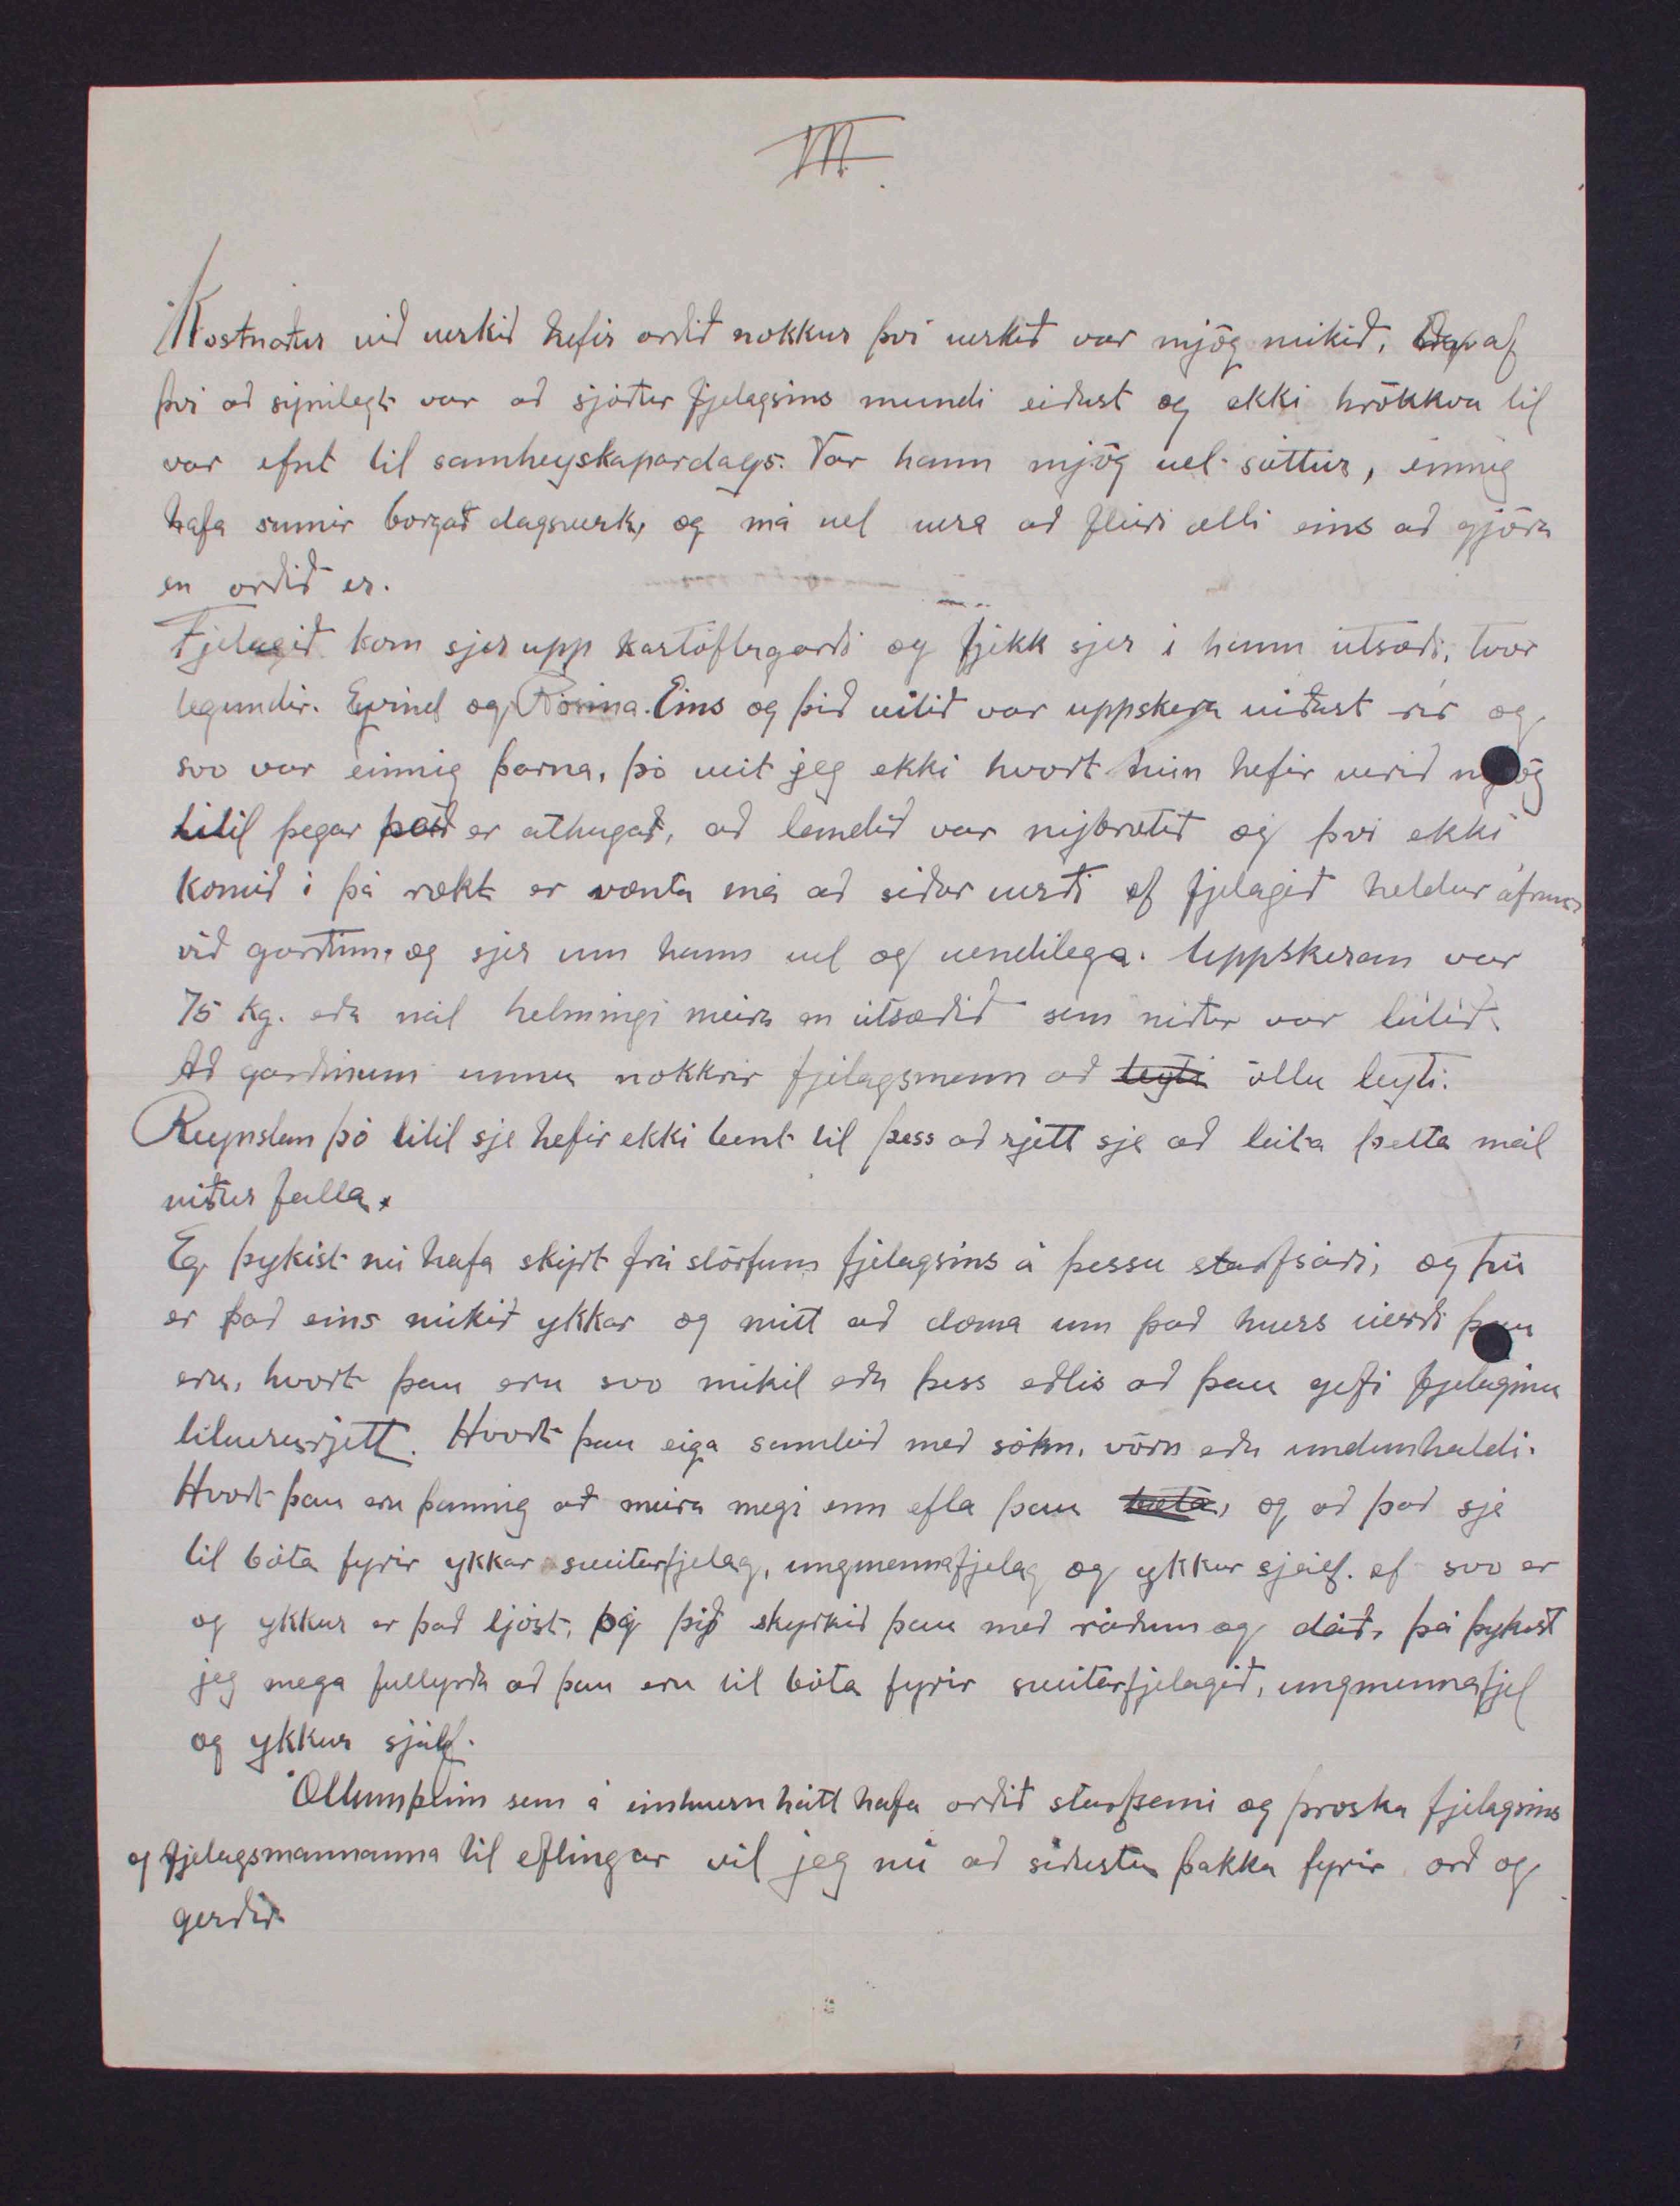 III.
Kostnaður við verkið hefir orðið nokkur því verkið var mjög mikið, af
því að sýnilegt var að sjóður fjelagsins mundi eiðast og ekki hrökkva til
var efnt til samheyskapardags. Var hann mjög vel sóttur, einnig
hafa sumir borgað dagsverk, og má vel vera að fleiri ætli eins að gjöra
en orðið er.
Fjelagið kom sjer upp kartöflugarði og fjekk sjer i hann útsæði, tvær
tegundir. Eyvind og Rósina. Eins og þið vitið var uppskera viðast rír og
svo var einnig þarna, þó veit jeg ekki hvort hún hefir verið mjög
litil þegar það er athugað, að landið var nýbrotið og því ekki
komið i þá rækt er vænta má að siðar verði ef fjelagið heldur áfram
við garðinn og sjer um hann vel og vendilega. Uppskeran var
75 kg. eða nál helmingi meira en útsæðið sem niður var látið.
Að garðinum unnu nokkrir fjelagsmenn að leyti öllu leyti.
Reynslan þó litil sje hefir ekki bent til þess að rjett sje að láta þetta mál
niður falla.
Eg þykist nú hafa skýrt frá störfum fjelagsins á þessu starfsári, og nú
er það eins mikið ykkar og mitt að dæma um það hvers virði þau
eru, hvort þau eru svo mikil eða þess eðlis að þau gefi fjelaginu
tilverurjett. Hvort þau eiga samleið með sókn, vörn eða undanhaldi.
Hvort þau eru þannig að meira megi enn efla þau bæta, og að það sje
til bóta fyrir ykkar sveitarfjelag, ungmennafjelag og ykkur sjálf. ef svo er
og ykkur er það ljóst, og þið styrkið þau með ráðum og dáð, þá þykist
jeg mega fullyrða að þau eru til bóta fyrir sveitarfjelagið, ungmennafjel
og ykkur sjálf.
Öllum þeim sem á einhvern hátt hafa orðið starfsemi og þroska fjelagsins
og fjelagsmannanna til eflingar vil jeg nú að siðustu þakka fyrir orð og
gerðir.